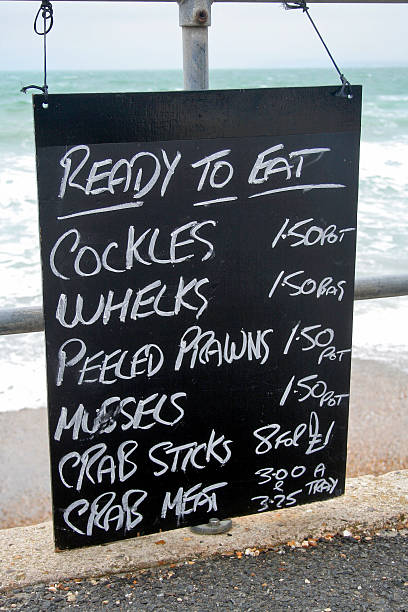 READY TO EAT
COCKLES 1.50 POT
WHELKS 1.50 BAG
PEELED PRAWNS 1.50 POT
MUSSELS 1.50 POT
CRAB STICKS 8 FOR £1
CRAB MEAT 3.00 & 3.25 A TRAY